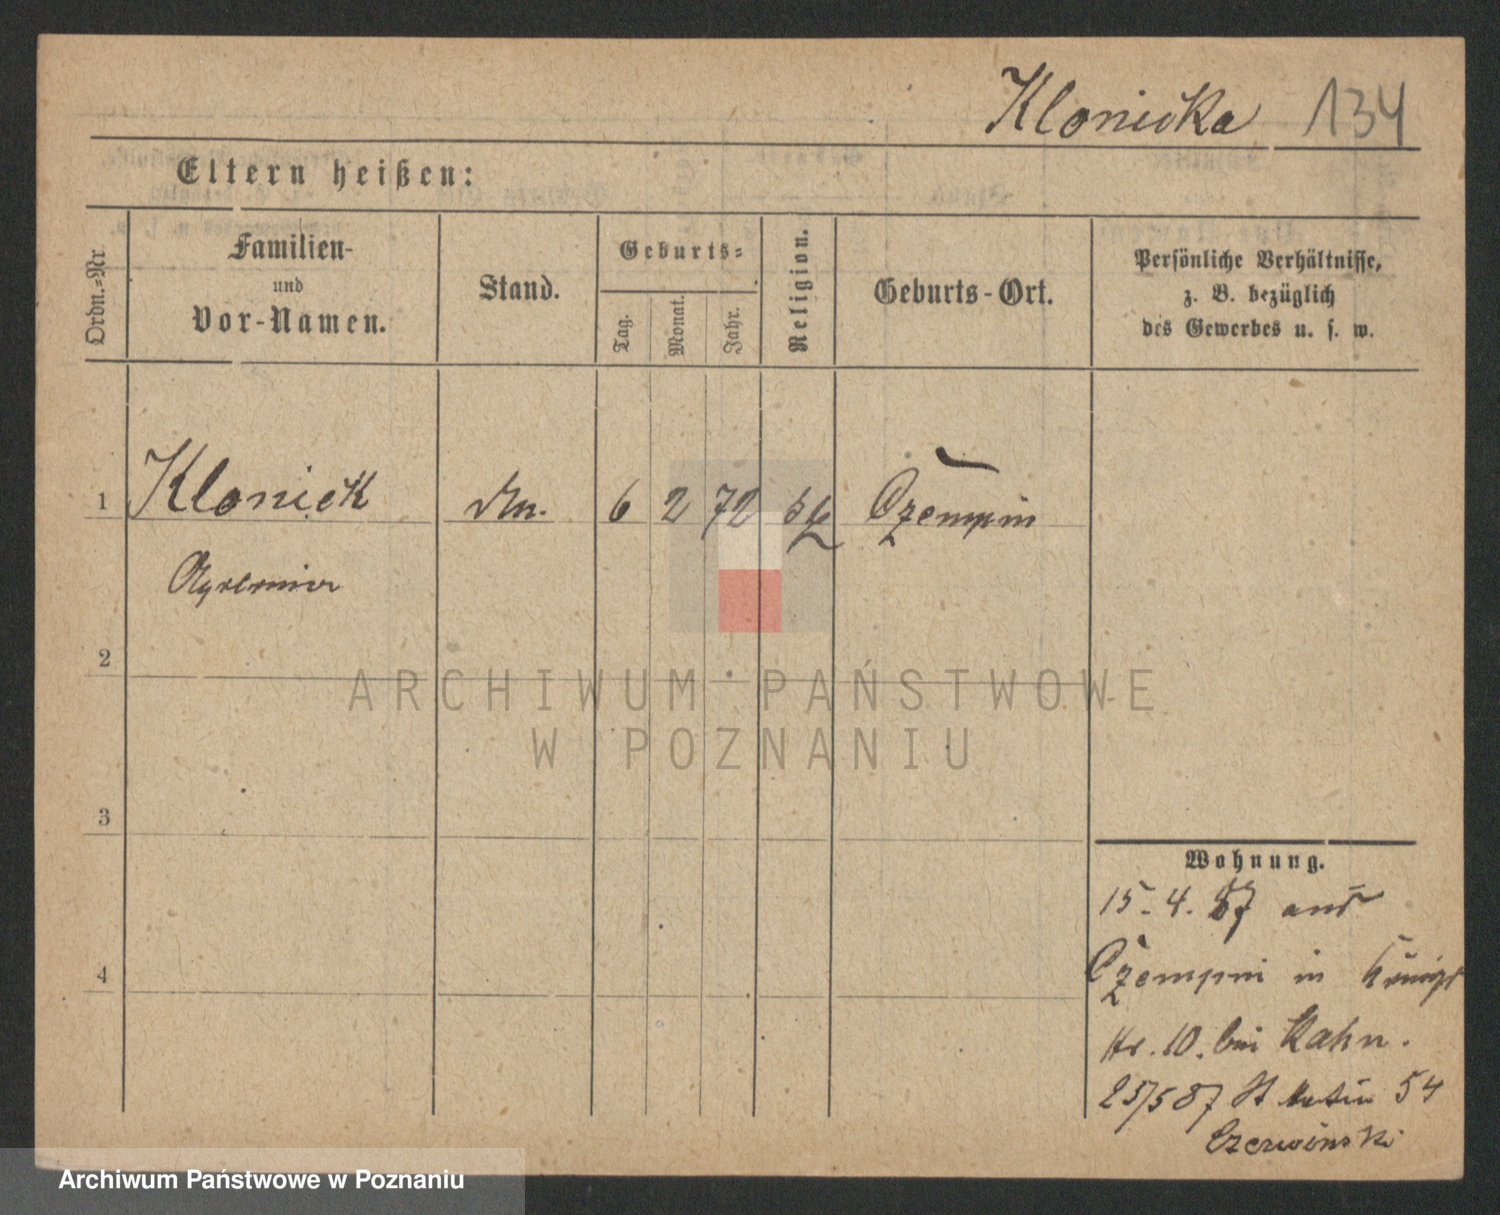 Klonicka 134
Eltern heißen:
Ordn.-Nr.
Familien-
und
Vor-Namen.
Stand.
Geburts-
Tag.
Monat.
Jahr.
Religion.
Geburts-Ort.
Persönliche Verhältnisse,
z. B. bezüglich
des Gewerbes u. s. w.
1 Klonick 6 2 72 Czempin
2
3
4
ARCHIWUM PAŃSTWOWE
W POZNANIU
Wohnung.
15.4.87 aus
Czempin in
Str. 10. bei Kahn.
25/5 87 St Martin 54
Czerwinski
Archiwum Państwowe w Poznaniu